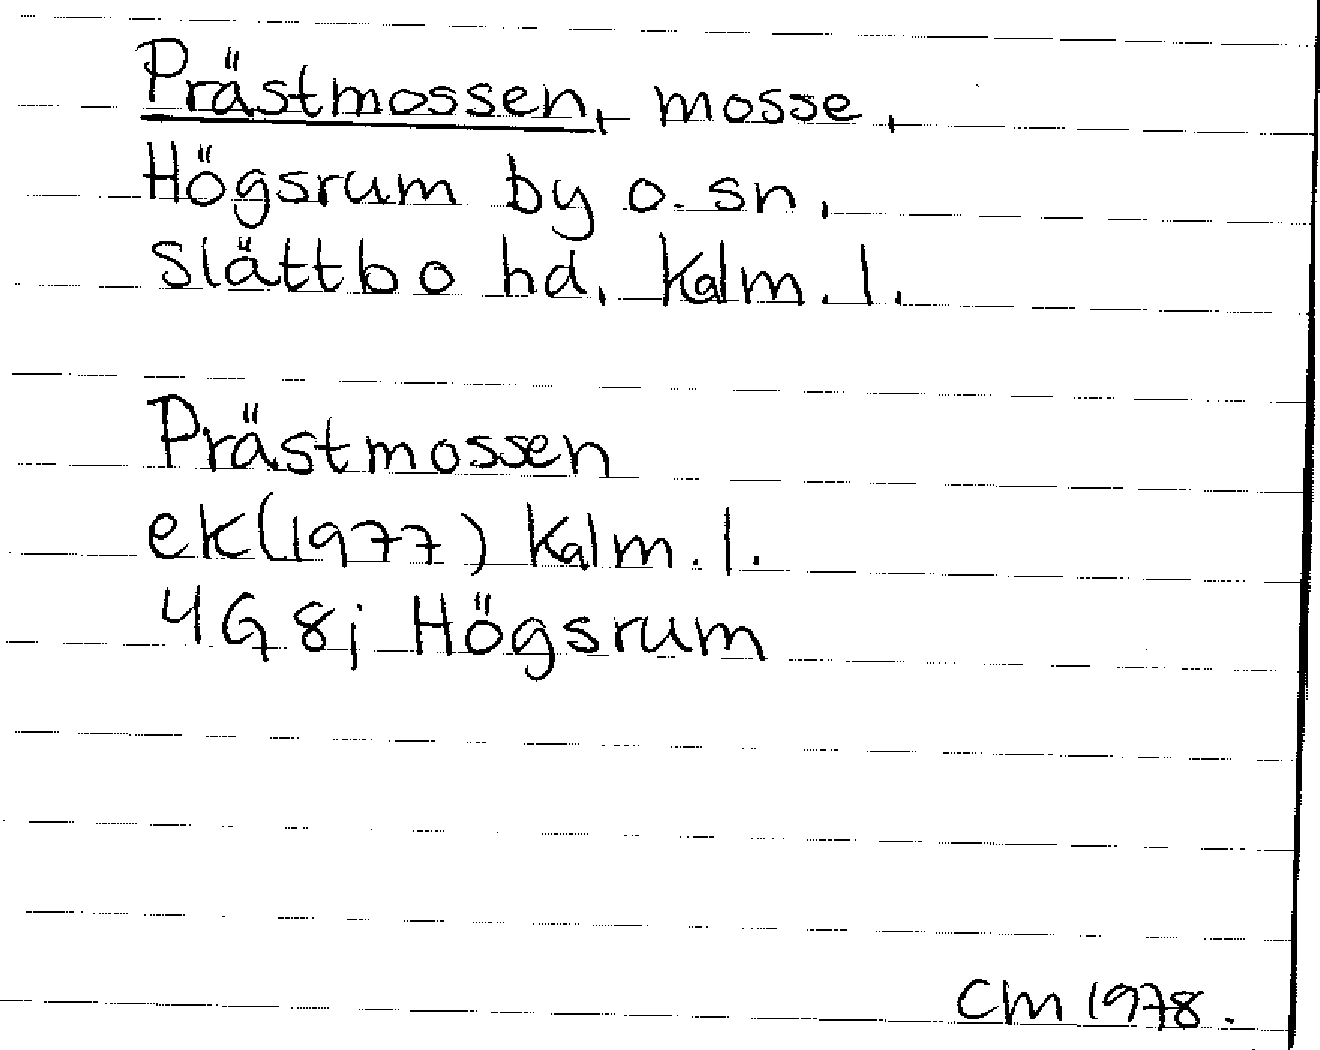 Prästmossen, mosse,
Högsrum by o. sn,
Slättbo hd, Kalm. l.
Prästmossen
ek(1977) Kalm. l.
4G 8j Högsrum
CM 1978.